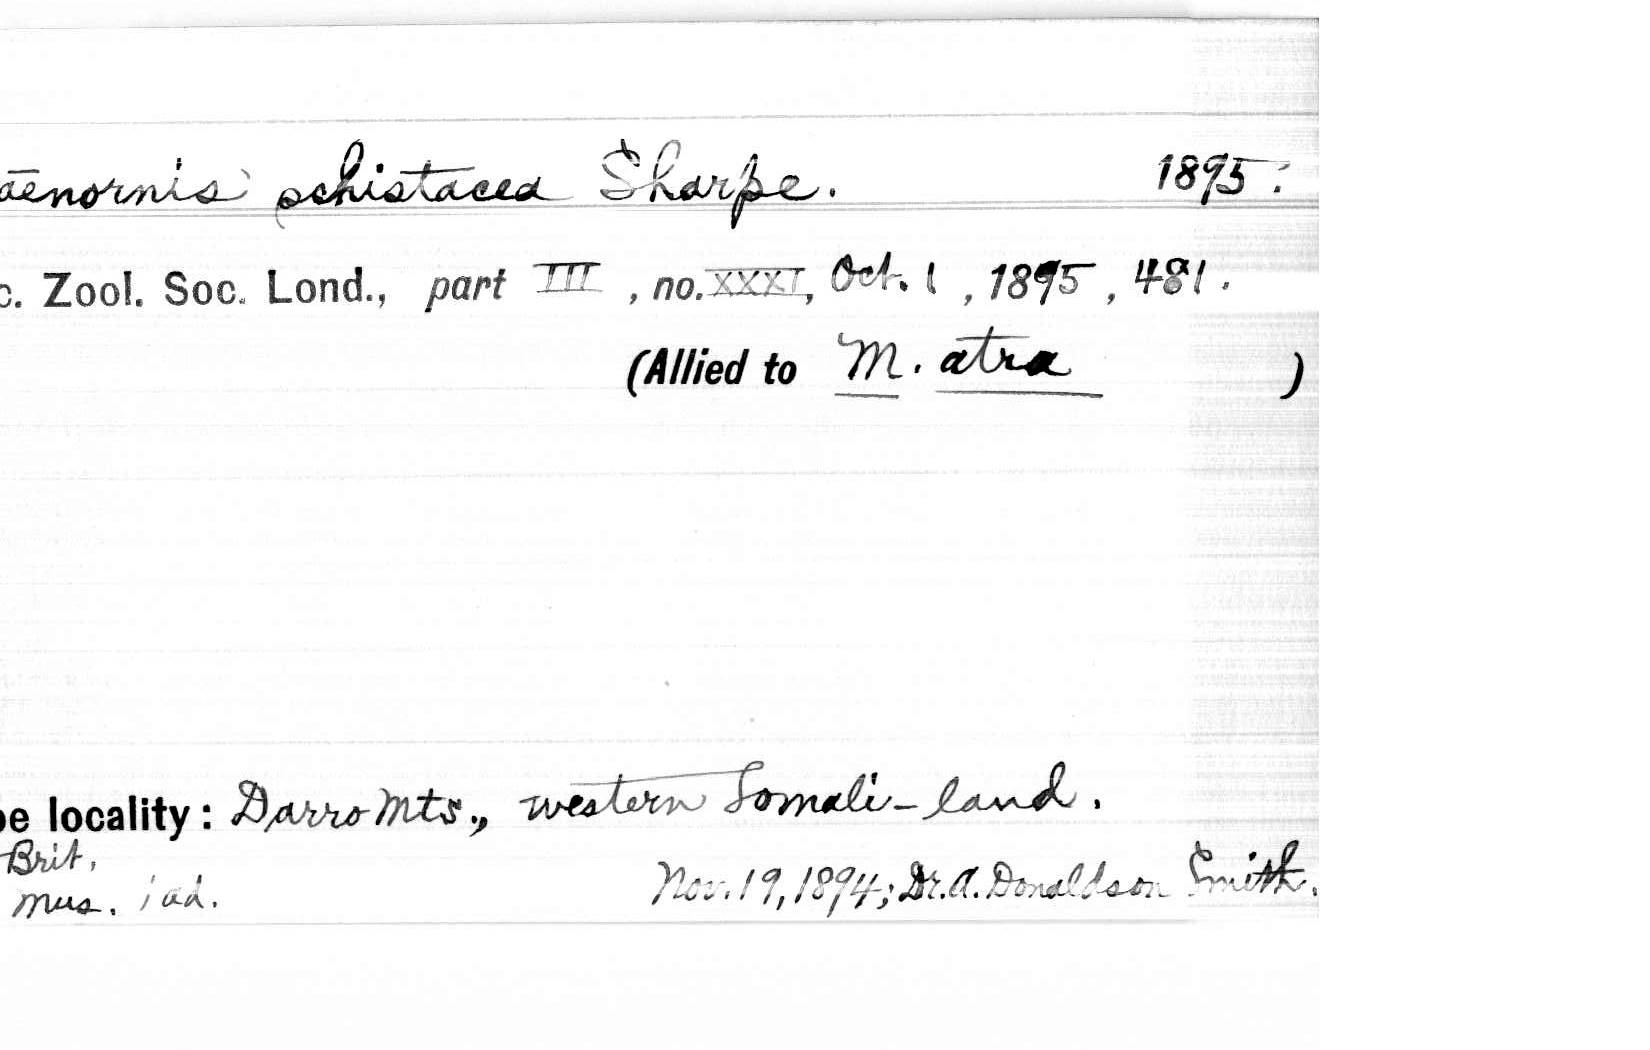 aenornis schistacea Sharpe. 1895.
c. Zool. Soc. Lond., part III, no. XXXI, Oct. 1, 1895, 481.
(Allied to M. atra )
pe locality: Darro Mts., western Somali-land.
Brit.
Mus. 1 ad. Nov. 19, 1894; Dr. A. Donaldson Smith.